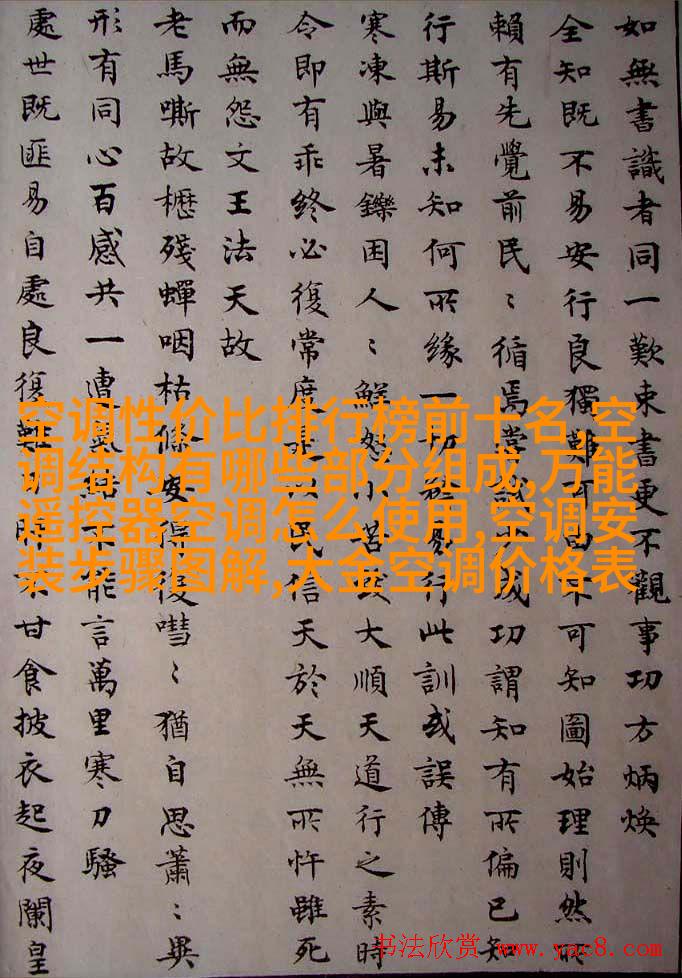 如無書識者同一歎束書更不觀事功方炳煥
全知既不易安行良獨難可由不可知圖始理則然所
賴有先覺前民〻循焉成功謂知有所偏已知
行斯易未知何所緣一切行此訓或誤傳
寒凍與暑鑠困人〻鮮怨小苦大順天道行之素時
令即有乖終必復常度是以民信天於天無所忤雖死
而無怨文王法天故
老馬嘶故櫪殘蟬咽枯條復嘒〻猶自思蕭〻異
形有同心百感共一遭氣結不能言萬里寒刀騷
處世既匪易自處良復難甘食披衣起夜闌皇
空调性价比排行榜前十名,空
调结构有哪些部分组成,万能
遥控器空调怎么使用,空调安
装步骤图解,大金空调价格表
书法欣赏 www.yac8.com